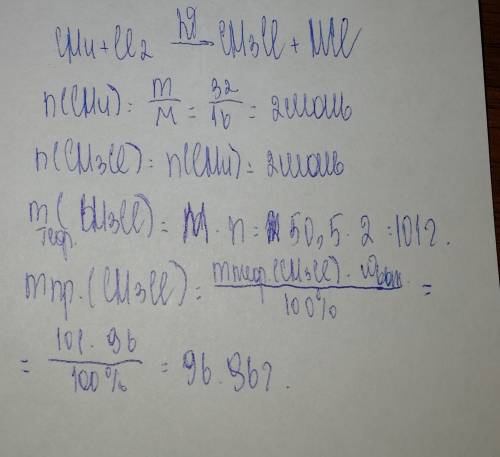 CH4 + Cl2 hν→ CH3Cl + HCl
n(CH4) = m/M = 32/16 = 2моль
n(CH3Cl) = n(CH4) = 2моль
mтеор.(CH3Cl) = M · n = 50,5 · 2 = 101г.
mпр.(CH3Cl) = mтеор(CH3Cl) · wвых / 100% =
= 101 · 96 / 100% = 96.96г.